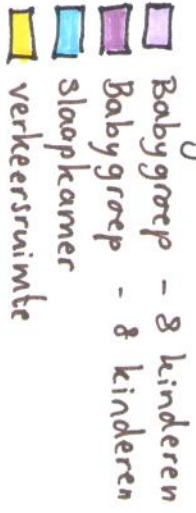 Babygroep - 8 kinderen
Babygroep - 8 kinderen
slaapkamer
verkeersruimte